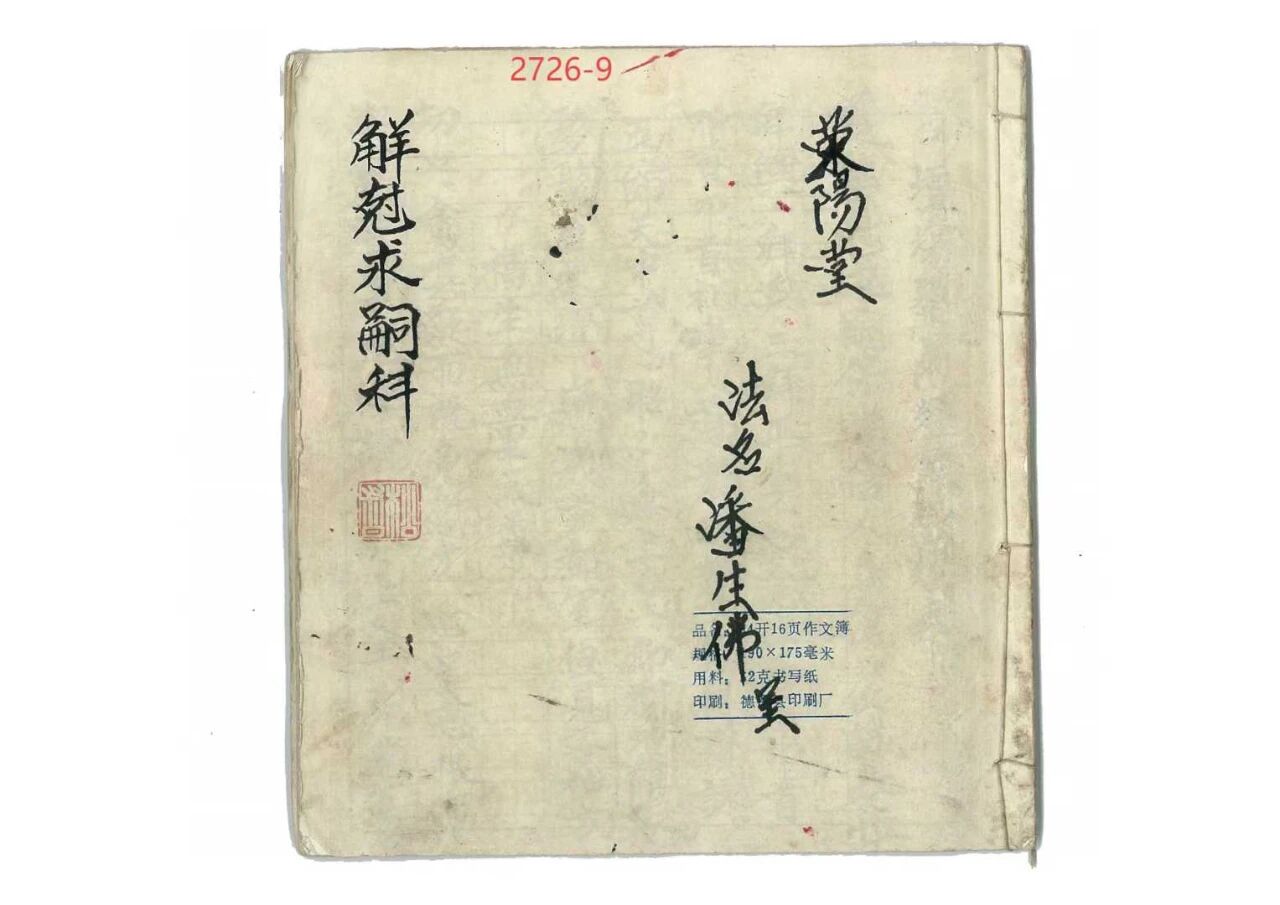 2726-9
荥陽堂
法名潘生佛
品名: 24开16页作文簿
规格: 190×175毫米
用料: 52克书写纸
印刷: 德 县印刷厂
解尅求嗣科